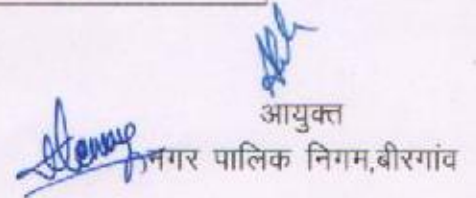 आयुक्त
नगर पालिक निगम,बीरगांव